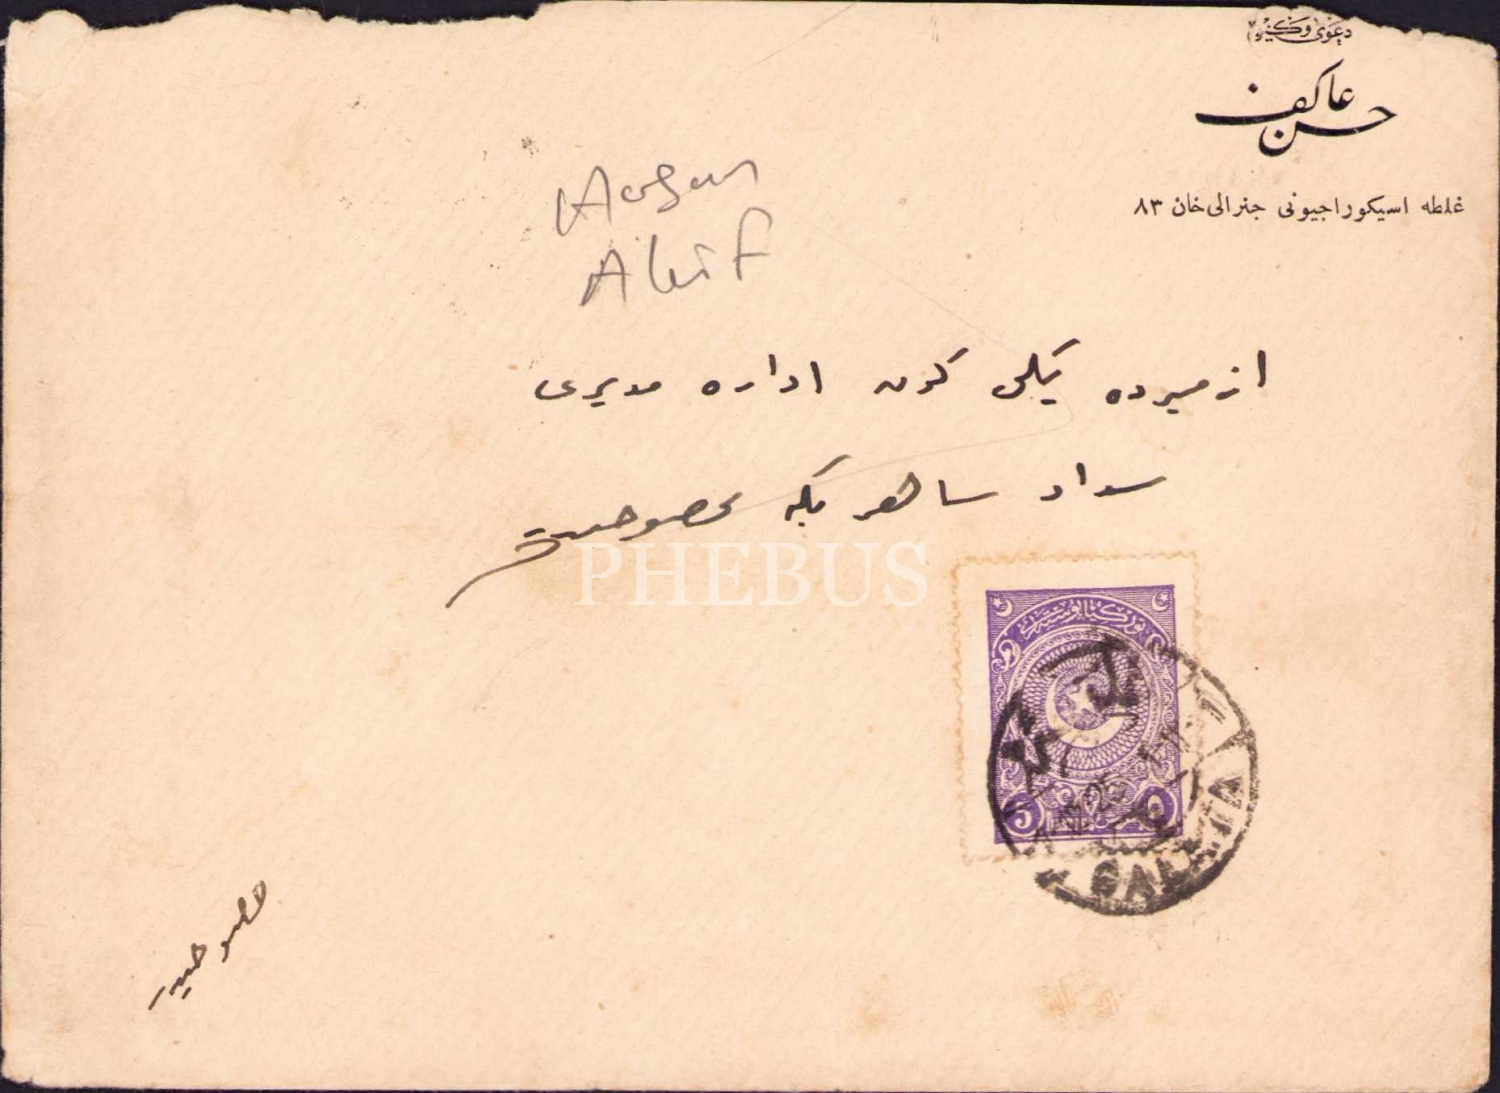 دعوى وكيلى
حسن عاكف
غلطه اسيكوراجيونى جنرالى خان ٨٣
Hasan
Akif
ازميرده يكى كون اداره مديرى
سداد ساهر بكه مخصوصدر
PHEBUS
5 ٥
GALATA
خصوصيدر